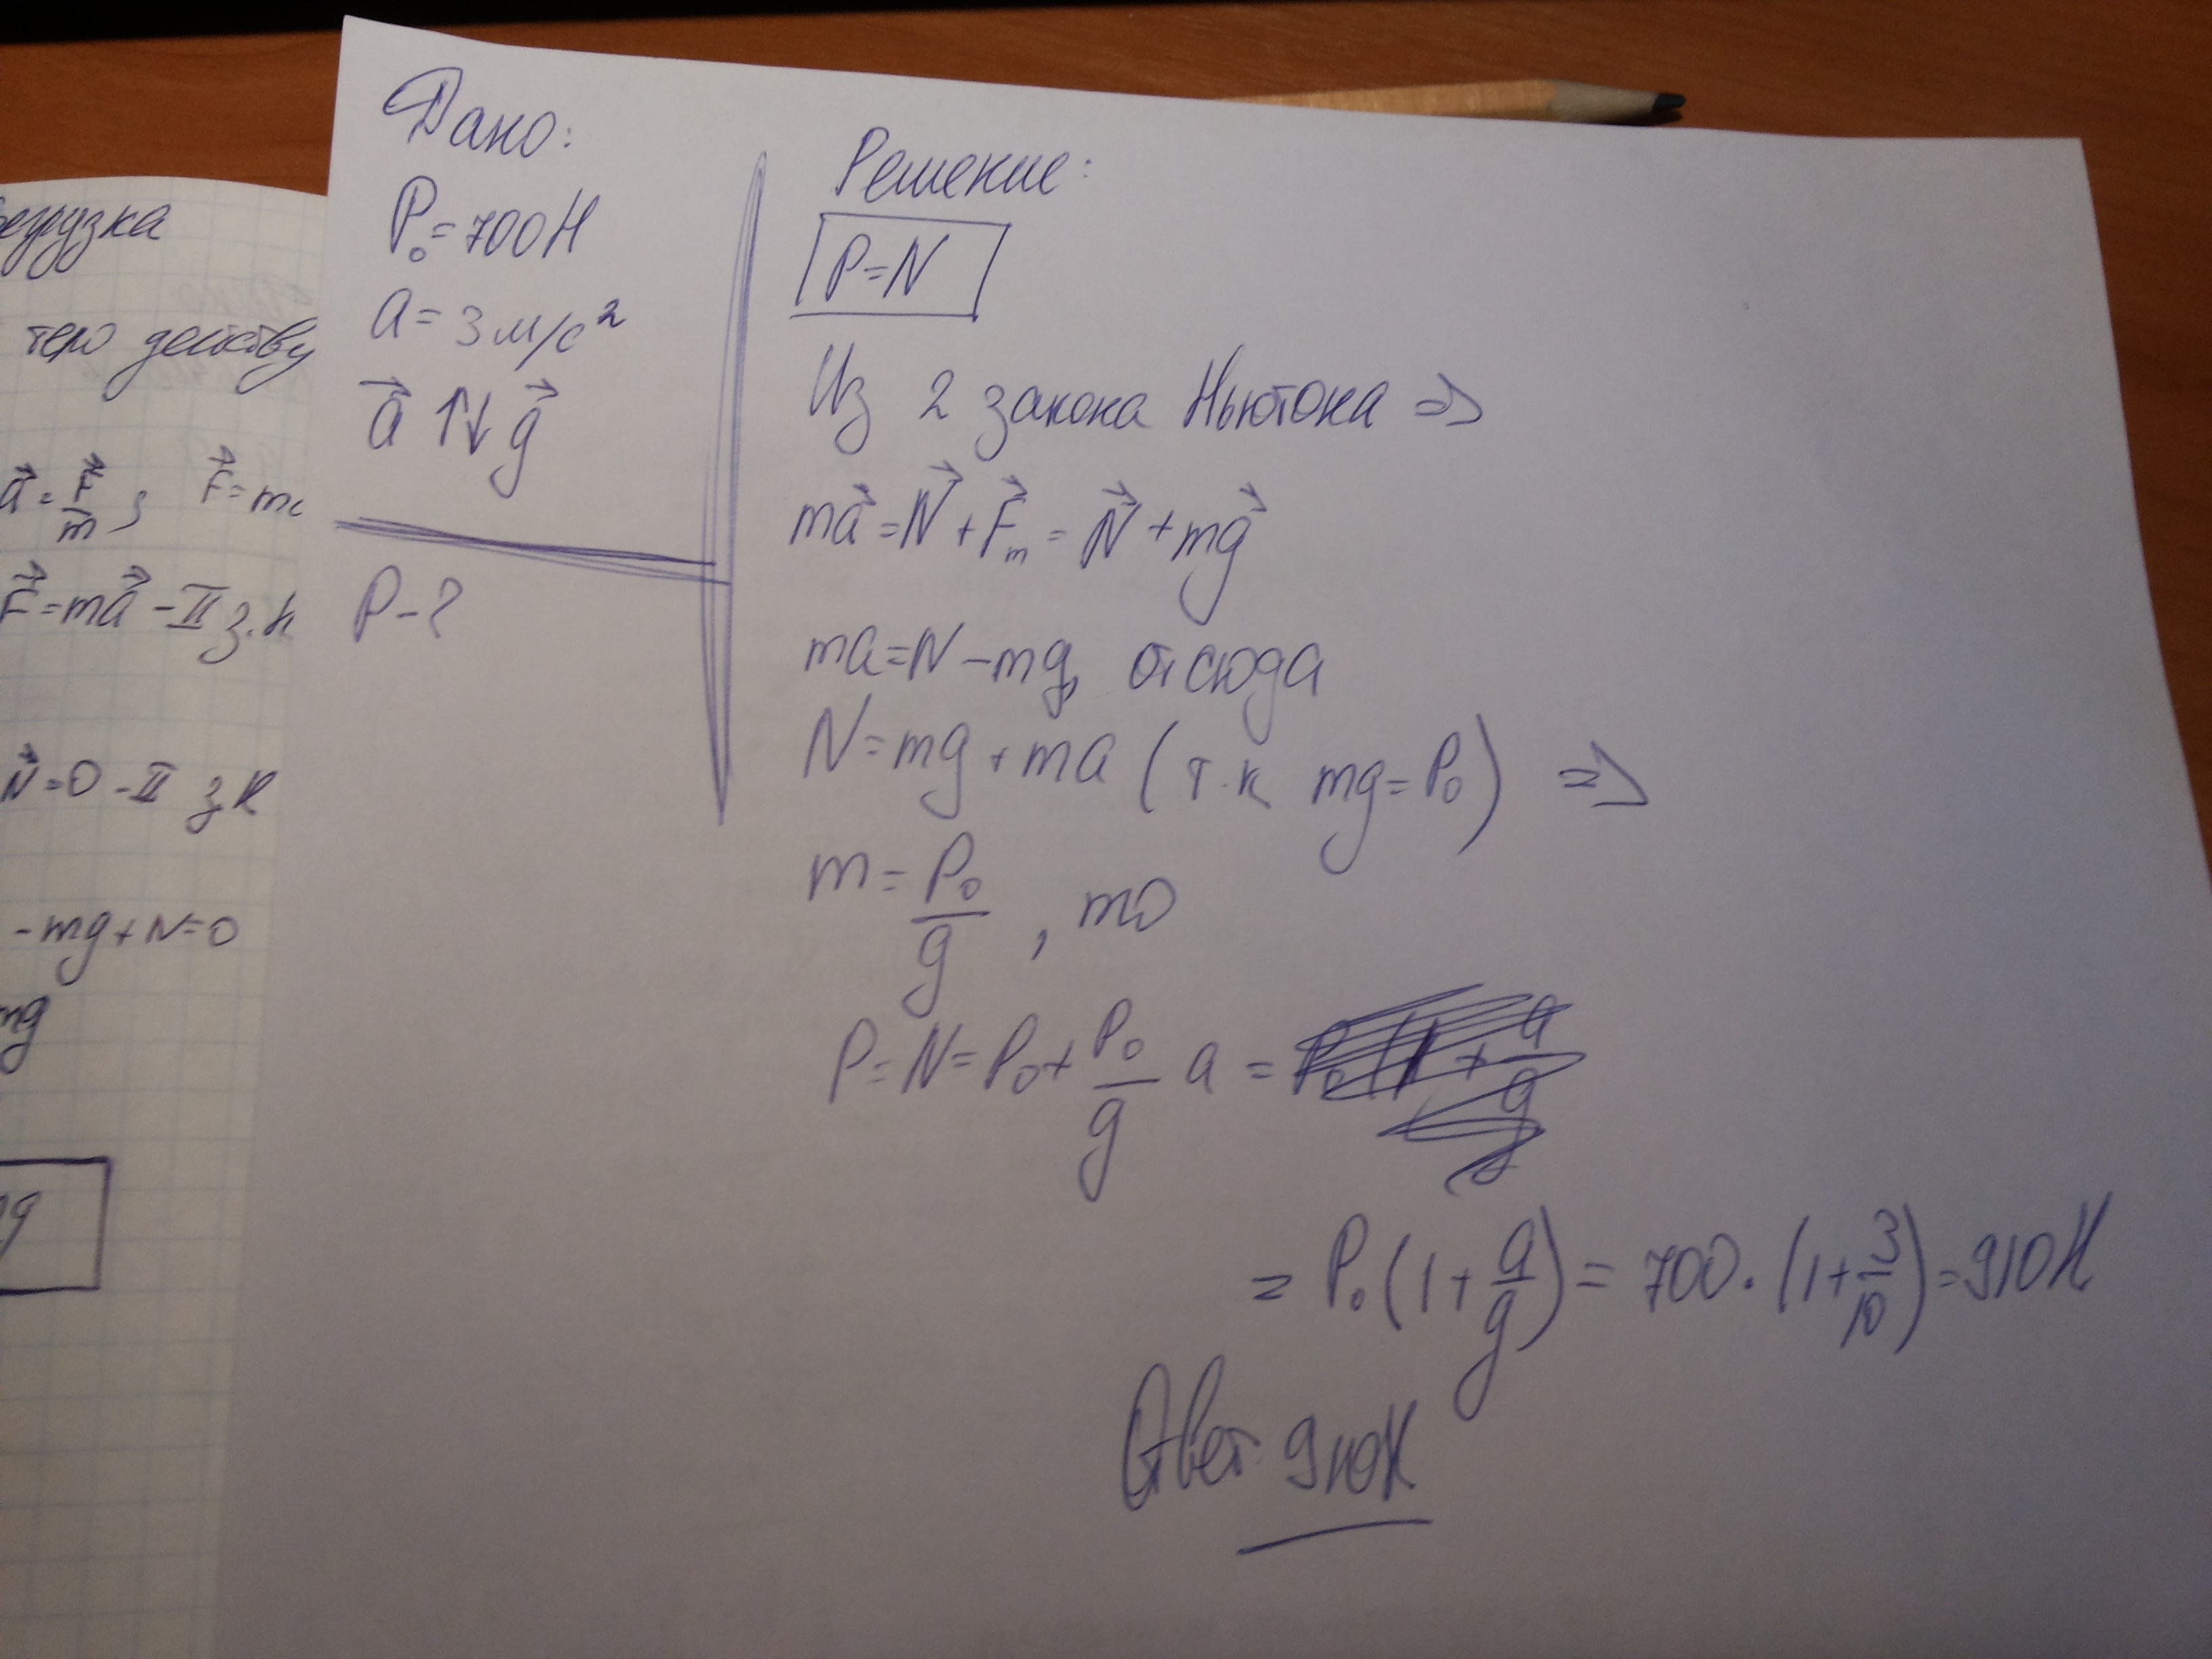 Дано:
P₀=700Н
a=3м/с²
a⃗ ↑↓ g⃗
P-?
Решение:
P=N
Из 2 закона Ньютона ⇒
ma⃗=N⃗+F⃗ₘ=N⃗+mg⃗
ma=N-mg, отсюда
N=mg+ma (т.к mg=P₀) ⇒
m=P₀/g, то
P=N=P₀+P₀/g a=
=P₀(1+a/g)=700·(1+3/10)=910Н
Ответ: 910Н
егрузка
тело действу
a⃗=F⃗/m; F⃗=ma
F⃗=ma⃗-II з.Н
N⃗=0-II з.Н
-mg+N=0
mg